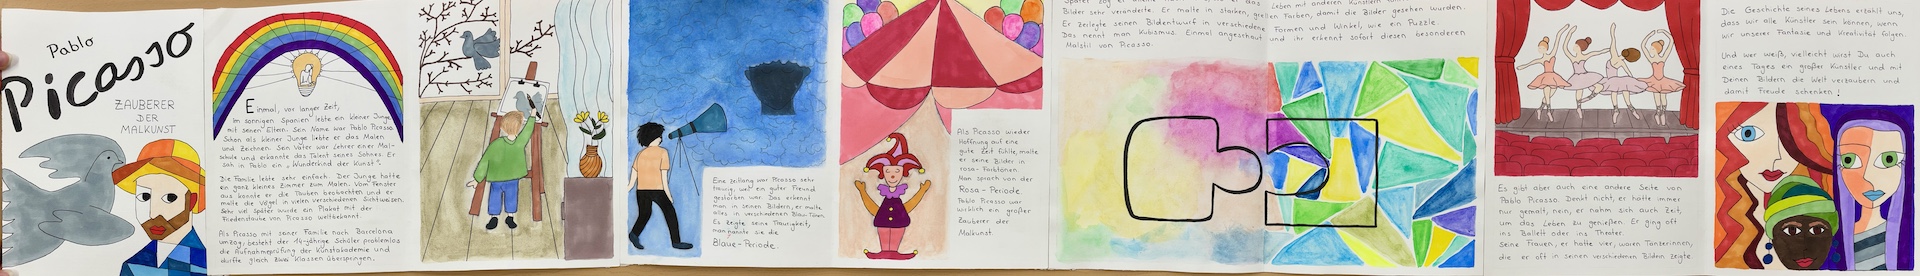 Pablo
Picasso
ZAUBERER
DER
MALKUNST
Einmal, vor langer Zeit,
im sonnigen Spanien lebte ein kleiner Junge
mit seinen Eltern. Sein Name war Pablo Picasso.
Schon als kleiner Junge liebte er das Malen
und Zeichnen. Sein Vater war Lehrer einer Mal-
schule und erkannte das Talent seines Sohnes. Er
sah in Pablo ein „Wunderkind der Kunst".
Die Familie lebte sehr einfach. Der Junge hatte
ein ganz kleines Zimmer zum Malen. Vom Fenster
aus konnte er die Tauben beobachten und er
malte die Vögel in vielen verschiedenen Sichtweisen.
Sehr viel später wurde ein Plakat mit der
Friedenstaube von Picasso weltbekannt.
Als Picasso mit seiner Familie nach Barcelona
umzog, besteht der 14-jährige Schüler problemlos
die Aufnahmeprüfung der Kunstakademie und
durfte gleich zwei Klassen überspringen.
Eine zeitlang war Picasso sehr
traurig, weil ein guter Freund
gestorben war. Das erkennt
man in seinen Bildern, er malte
alles in verschiedenen Blau-Tönen.
Es zeigte seine Traurigkeit,
man nannte sie die
Blaue-Periode.
Als Picasso wieder
Hoffnung auf eine
gute Zeit fühlte, malte
er seine Bilder in
rosa-Farbtönen.
Man sprach von der
Rosa-Periode
Pablo Picasso war
wirklich ein großer
Zauberer der
Malkunst.
Bilder sehr veränderte. Er malte in starken, grellen Farben, damit die Bilder gesehen wurden.
Er zerlegte seinen Bildentwurf in verschiedene Formen und Winkel, wie ein Puzzle.
Das nennt man Kubismus. Einmal angeschaut und ihr erkennt sofort diesen besonderen
Malstil von Picasso.
Es gibt aber auch eine andere Seite von
Pablo Picasso. Denkt nicht, er hätte immer
nur gemalt, nein, er nahm sich auch Zeit,
um das Leben zu genießen. Er ging oft
ins Ballett oder ins Theater.
Seine Frauen, er hatte vier, waren Tänzerinnen,
die er oft in seinen verschiedenen Bildern zeigte.
Die Geschichte seines Lebens erzählt uns,
dass wir alle Künstler sein können, wenn
wir unserer Fantasie und Kreativität folgen.
Und wer weiß, vielleicht wirst Du auch
eines Tages ein großer Künstler und mit
Deinen Bildern die Welt verzaubern und
damit Freude schenken!